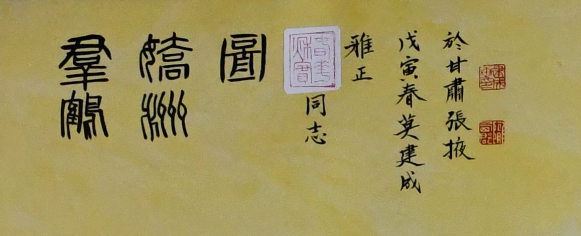 羣鶴
嬌
圖
同志
雅正
戊寅春莫建成
於甘肅張掖